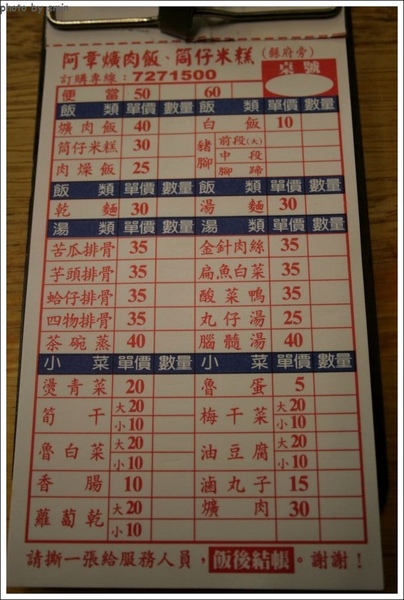 photo by amin
阿章爌肉飯、筒仔米糕(縣府旁)
訂購專線：7271500
桌號
便當 50 60
飯類 單價 數量 飯類 單價 數量
爌肉飯 40 白飯 10
筒仔米糕 30 豬腳 前段(大)
中段
肉燥飯 25 腳蹄
飯類 單價 數量 飯類 單價 數量
乾麵 30 湯麵 30
湯類 單價 數量 湯類 單價 數量
苦瓜排骨 35 金針肉絲 35
芋頭排骨 35 扁魚白菜 35
蛤仔排骨 35 酸菜鴨 35
四物排骨 35 丸仔湯 25
茶碗蒸 40 腦髓湯 40
小菜 單價 數量 小菜 單價 數量
燙青菜 20 魯蛋 5
筍干 大20 小10 梅干菜 大20 小10
魯白菜 大20 小10 油豆腐 大20 小10
香腸 10 滷丸子 15
蘿蔔乾 大20 小10 爌肉 30
請撕一張給服務人員，飯後結帳。謝謝！